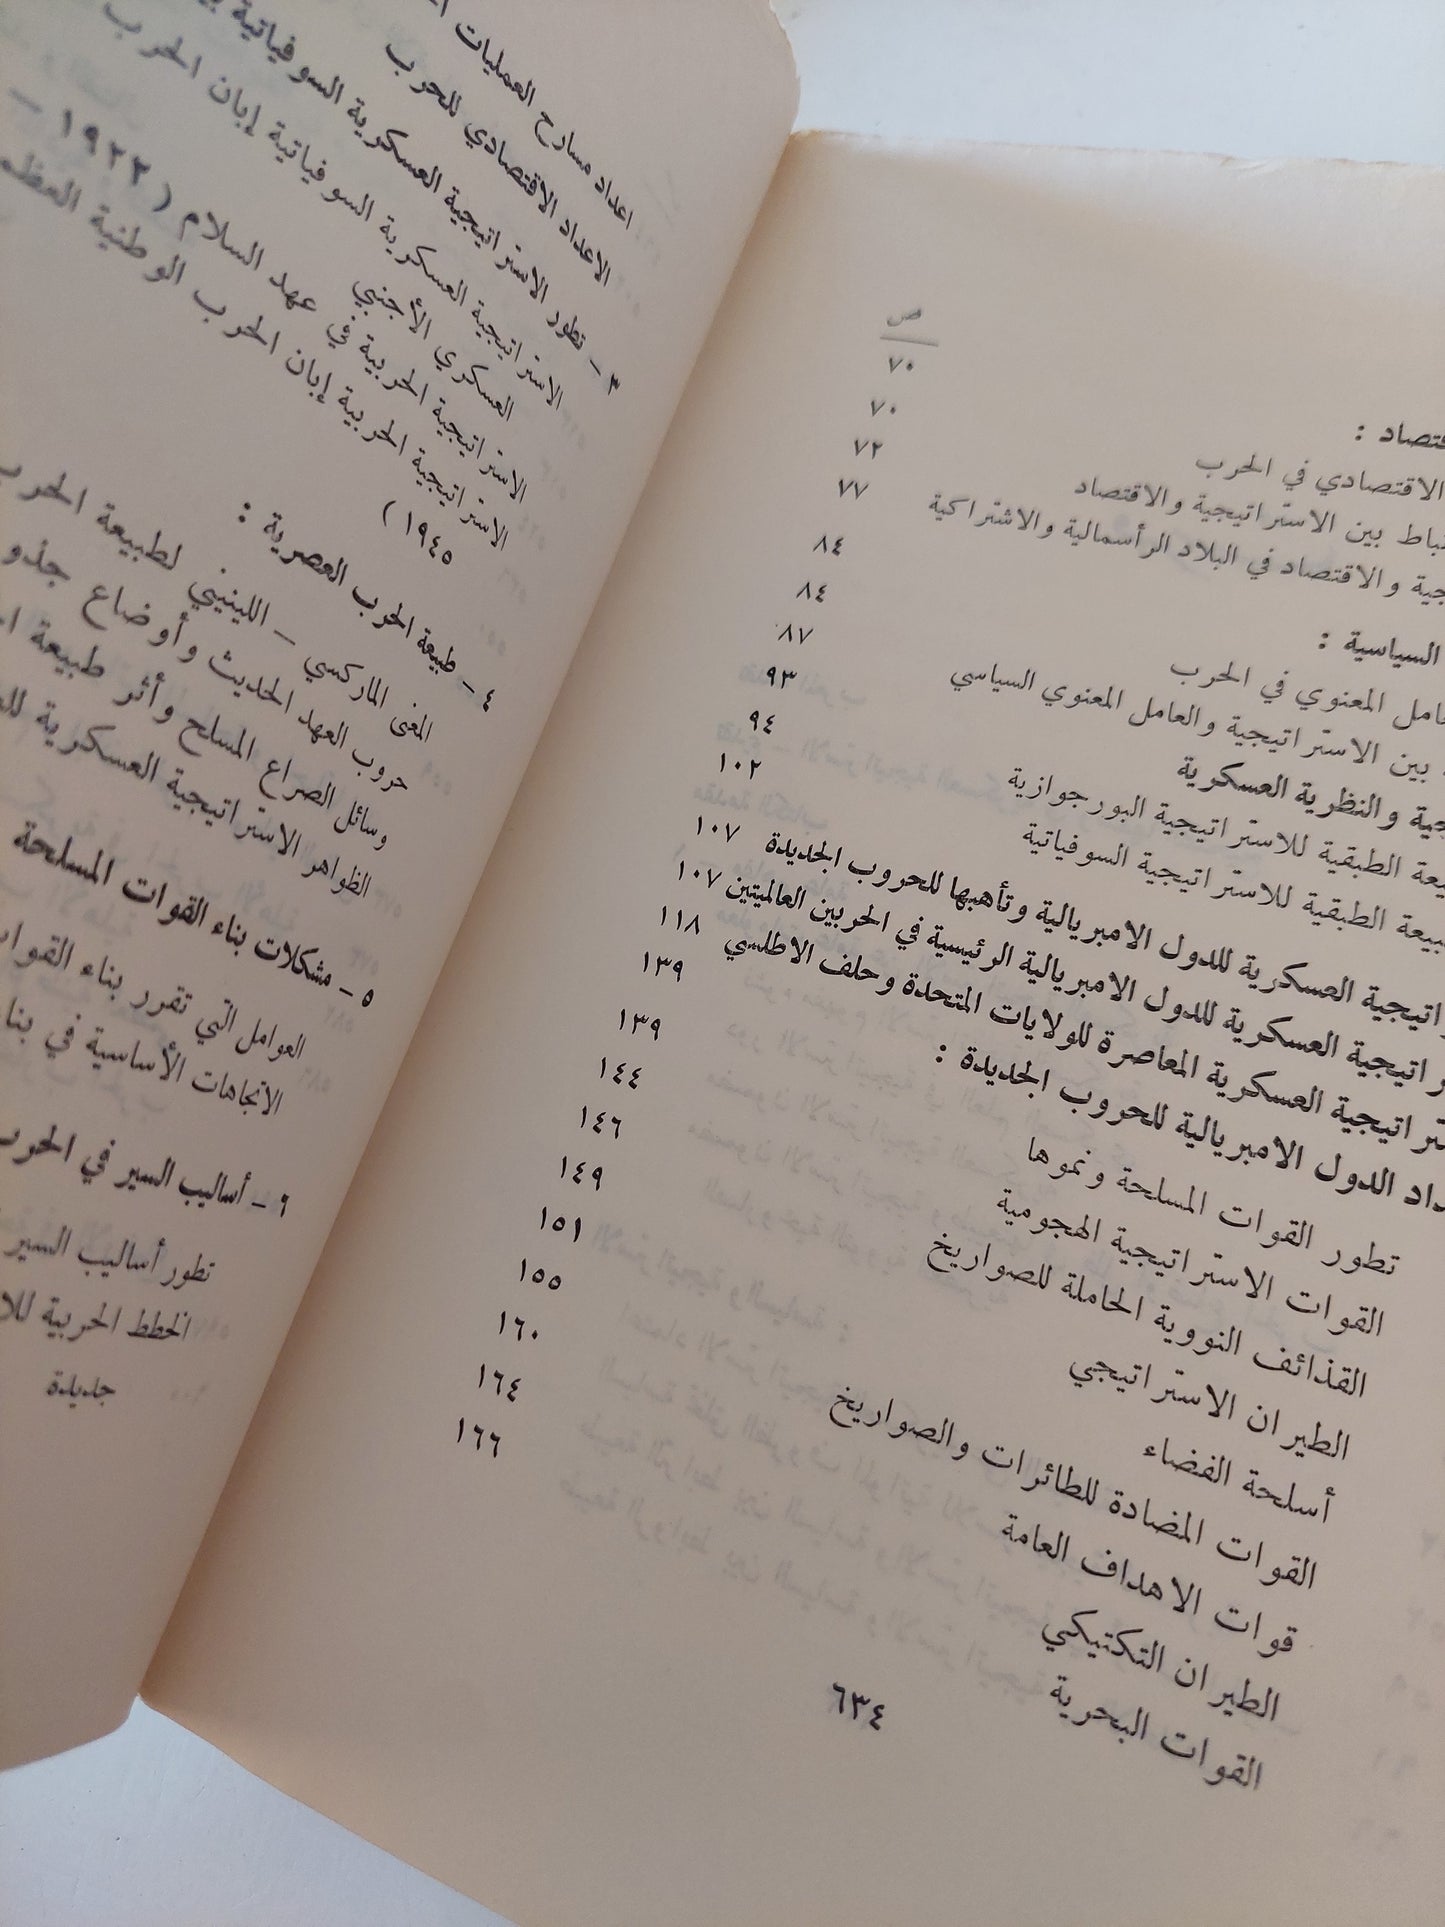 ص
قتصاد : ٧٠
الاقتصادي في الحرب ٧٠
بين الاستراتيجية والاقتصاد ٧٢
والاقتصاد في البلاد الرأسمالية والاشتراكية ٧٧
السياسية : ٨٤
المعنوي في الحرب ٨٤
بين الاستراتيجية والعامل المعنوي السياسي ٨٧
والنظرية العسكرية ٩٣
الطبقية للاستراتيجية البورجوازية ٩٤
الطبقية للاستراتيجية السوفياتية ١٠٢
العسكرية للدول الامبريالية وتأهبها للحروب الجديدة ١٠٧
العسكرية للدول الامبريالية الرئيسية في الحربين العالميتين ١٠٧
العسكرية المعاصرة للولايات المتحدة وحلف الاطلسي ١١٨
الدول الامبريالية للحروب الجديدة : ١٣٩
تطور القوات المسلحة ونموها ١٣٩
القوات الاستراتيجية الهجومية ١٤٤
القذائف النووية الحاملة للصواريخ ١٤٦
الطيران الاستراتيجي ١٤٩
أسلحة الفضاء ١٥١
القوات المضادة للطائرات والصواريخ ١٥٥
قوات الاهداف العامة ١٦٠
الطيران التكتيكي ١٦٤
القوات البحرية ١٦٦
٦٣٤
اعداد مسارح العمليات
الاعداد الاقتصادي للحرب
٣ – تطور الاستراتيجية العسكرية السوفياتية
الاستراتيجية العسكرية السوفياتية إبان الحرب
العسكري الأجنبي
الاستراتيجية الحربية في عهد السلام ( ١٩٢٢ –
الاستراتيجية الحربية إبان الحرب الوطنية
١٩٤٥ )
٤ – طبيعة الحرب العصرية :
المغنى الماركسي – اللينيني لطبيعة الحرب
حروب العهد الحديث وأوضاع
وسائل الصراع المسلح وأثر طبيعة
الظواهر الاستراتيجية العسكرية
٥ – مشكلات بناء القوات المسلحة
العوامل التي تقرر بناء
الاتجاهات الأساسية في
٦ – أساليب السير في الحرب
تطور أساليب السير
الخطط الحربية
جديدة